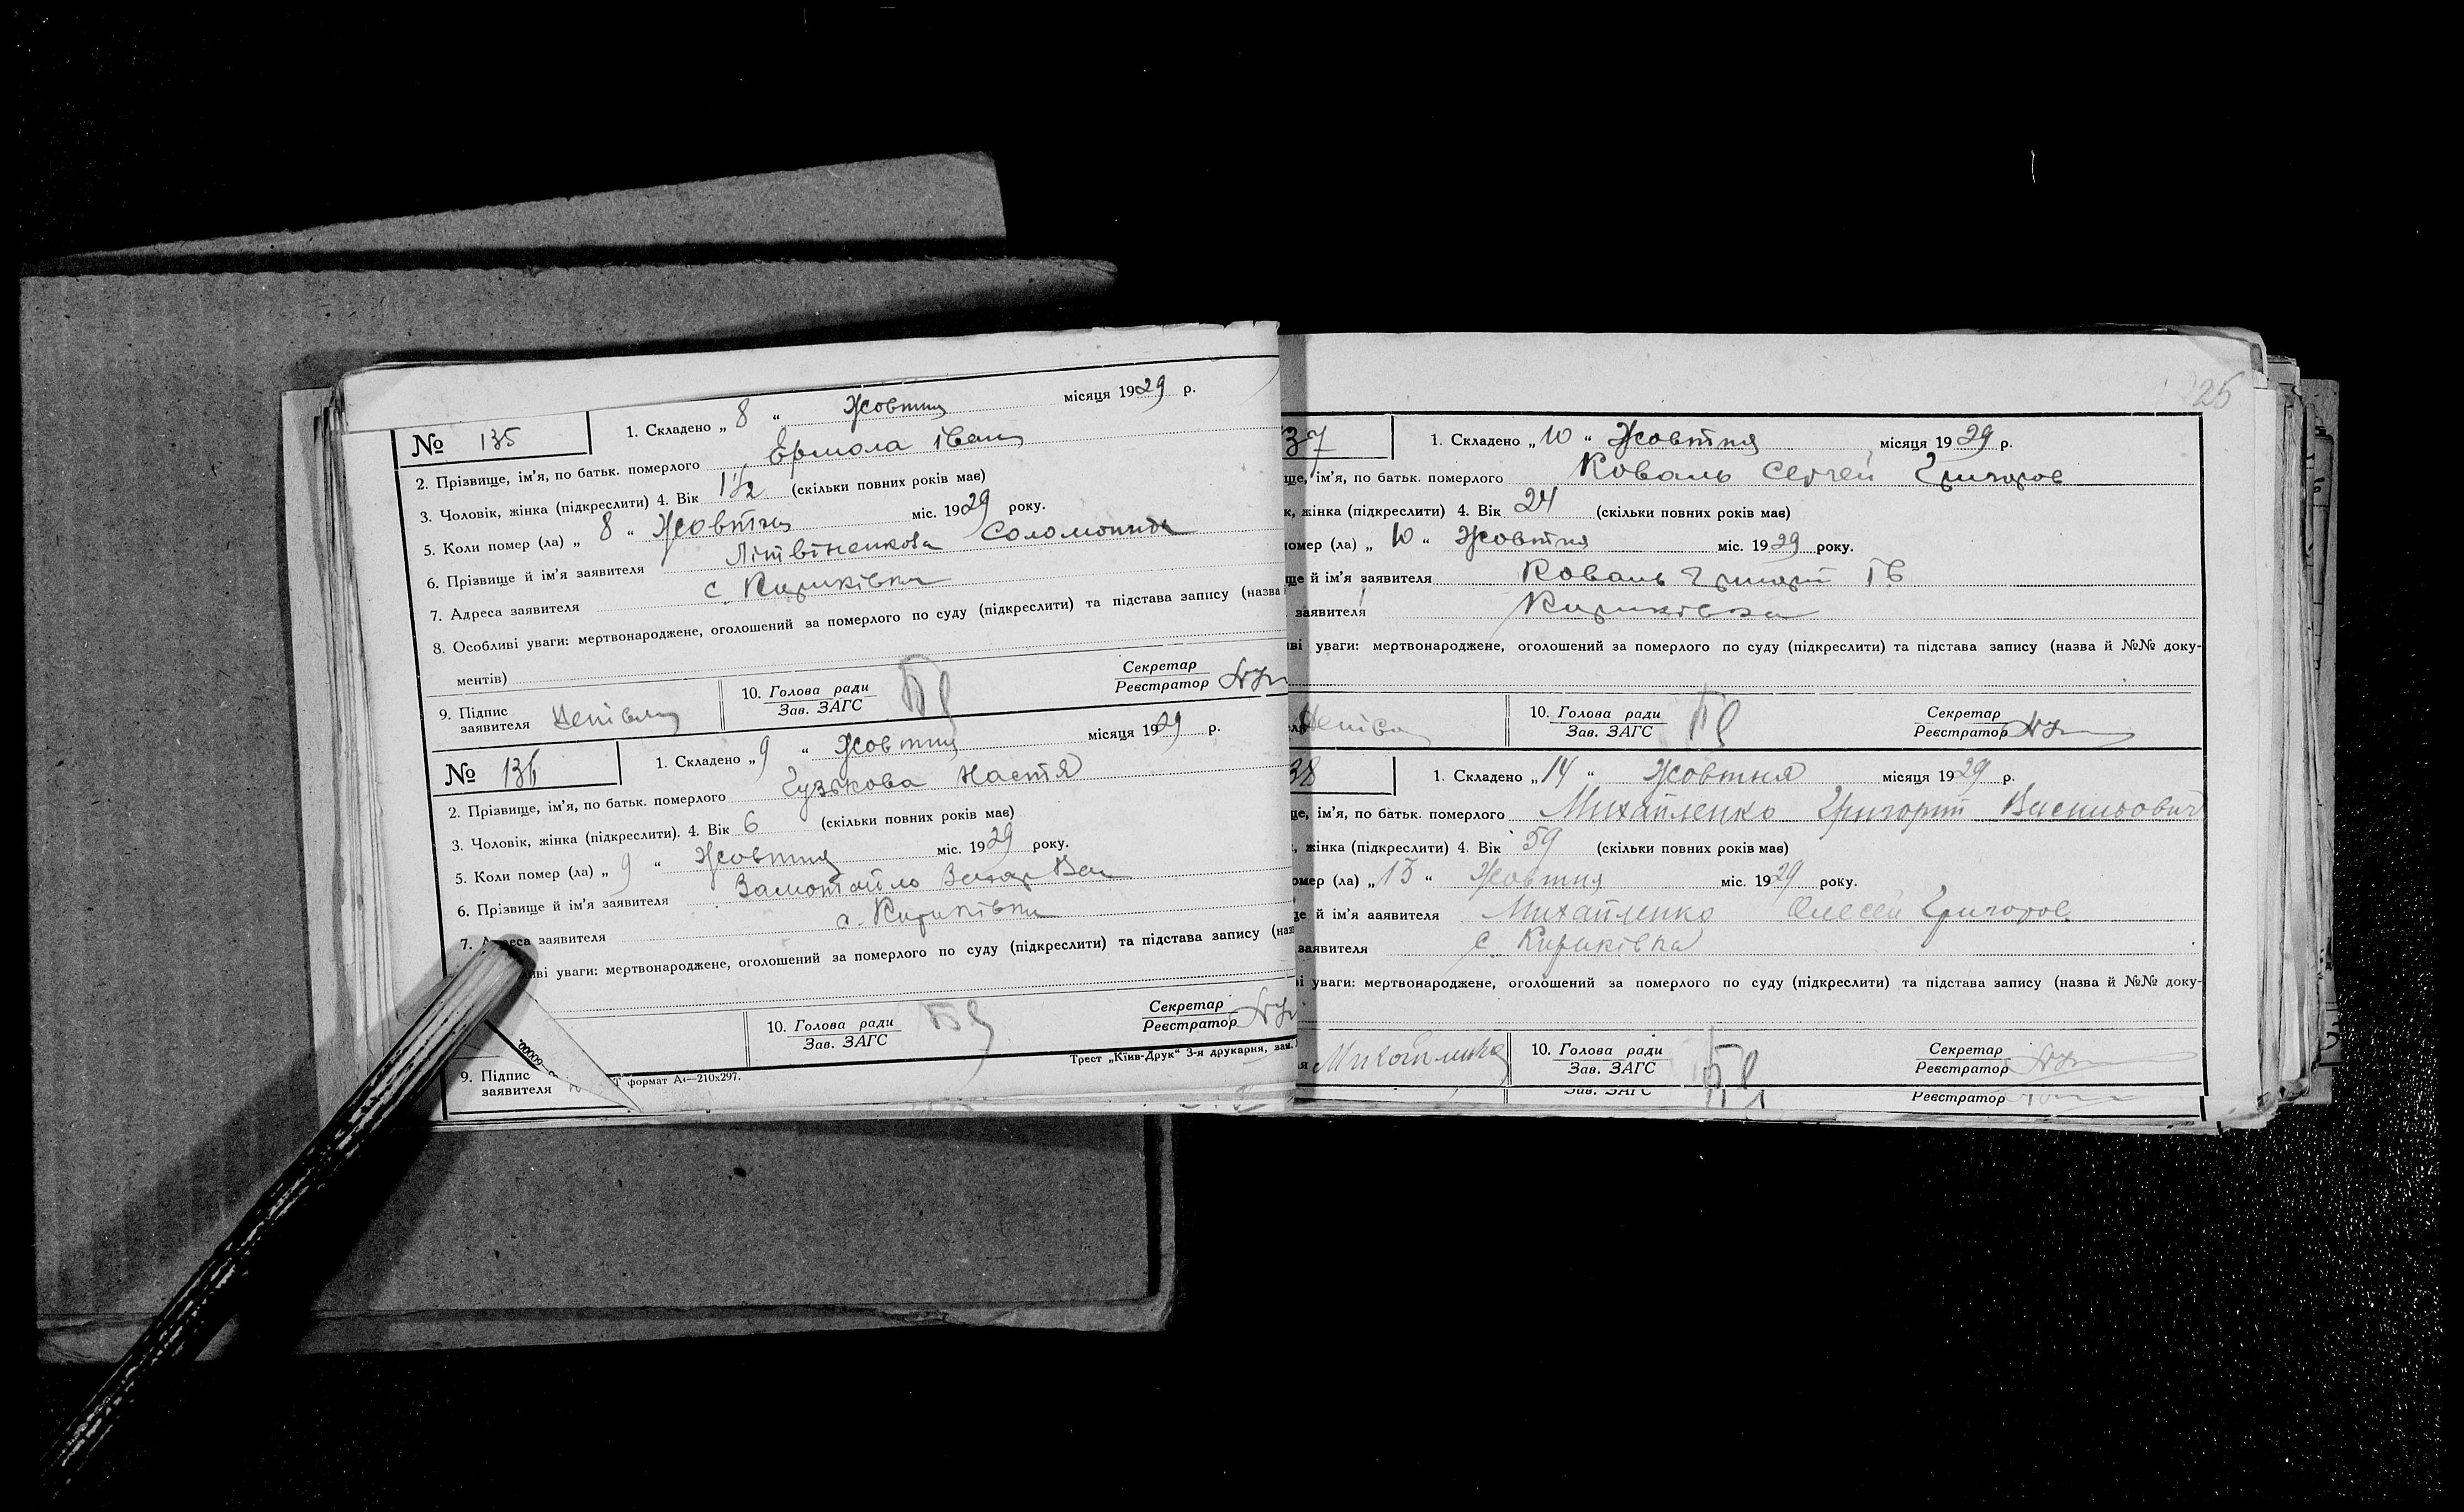 № 135
1. Складено „ 8 “ Жовтня місяця 1929 р.
2. Прізвище, ім'я, по батьк. померлого Ермола Іван
3. Чоловік, жінка (підкреслити) 4. Вік 1½ (скільки повних років має)
5. Коли помер (ла) „ 8 “ Жовтня міс. 1929 року.
6. Прізвище й ім'я заявителя Літвіненкова Соломонида
7. Адреса заявителя с. Кириківка
8. Особливі уваги: мертвонароджене, оголошений за померлого по суду (підкреслити) та підстава запису (назва
ментів)
9. Підпис заявителя
10. Голова ради
Зав. ЗАГС
Секретар
Реєстратор
№ 136
1. Складено „ 9 “ Жовтня місяця 1929 р.
2. Прізвище, ім'я, по батьк. померлого Гузькова Настя
3. Чоловік, жінка (підкреслити). 4. Вік 6 (скільки повних років має)
5. Коли помер (ла) „ 9 “ Жовтня міс. 1929 року.
6. Прізвище й ім'я заявителя Замотайло Захар Вас
7. Адреса заявителя с. Кириківка
іві уваги: мертвонароджене, оголошений за померлого по суду (підкреслити) та підстава запису (наз
9. Підпис заявителя
10. Голова ради
Зав. ЗАГС
Секретар
Реєстратор
60000.
Т формат А4—210х297.
Трест „Київ-Друк“ 3-я друкарня, зам.
25
37
1. Складено „ 10 “ Жовтня місяця 1929 р.
ще, ім'я, по батьк. померлого Коваль Сергей Григоров
к, жінка (підкреслити) 4. Вік 24 (скільки повних років має)
омер (ла) „ 10 “ Жовтня міс. 1929 року.
ще й ім'я заявителя Коваль Григорій Ів
заявителя Кириківка
іві уваги: мертвонароджене, оголошений за померлого по суду (підкреслити) та підстава запису (назва й №№ доку-
10. Голова ради
Зав. ЗАГС
Секретар
Реєстратор
38
1. Складено „ 14 “ Жовтня місяця 1929 р.
ще, ім'я, по батьк. померлого Михайленко Григорій Васильович
к, жінка (підкреслити) 4. Вік 59 (скільки повних років має)
омер (ла) „ 13 “ Жовтня міс. 1929 року.
ще й ім'я заявителя Михайленко Олесей Григоров
заявителя с. Кириківка
ві уваги: мертвонароджене, оголошений за померлого по суду (підкреслити) та підстава запису (назва й №№ доку-
10. Голова ради
Зав. ЗАГС
Секретар
Реєстратор
Зав. ЗАГС
Реєстратор